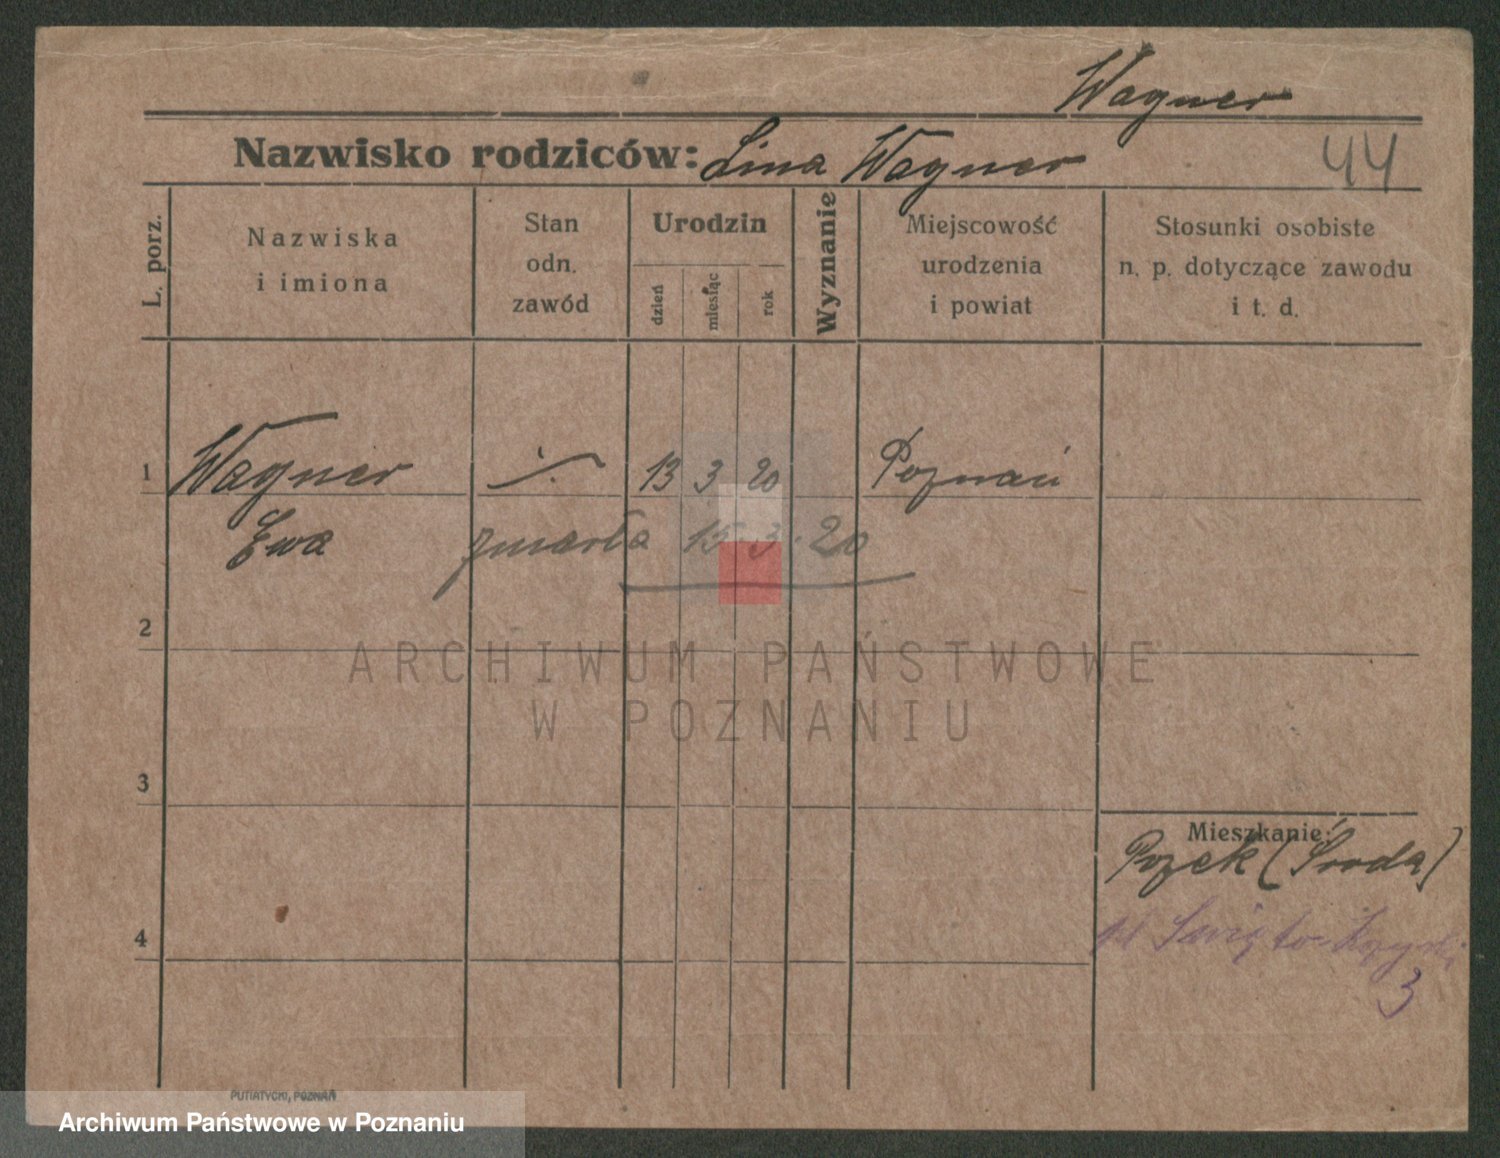 Wagner
Nazwisko rodziców: Lina Wagner
44
L. porz.
Nazwiska i imiona
Stan odn. zawód
Urodzin
dzień
miesiąc
rok
Wyznanie
Miejscowość urodzenia i powiat
Stosunki osobiste n. p. dotyczące zawodu i t. d.
1 Wagner ·/. 13 3 20 Poznań
Ewa zmarła 15. 3. 20
2
ARCHIWUM PAŃSTWOWE
W POZNANIU
3
Mieszkanie:
(Środa)
4
pl Święto-Krzyski
3
PUTIATYCKI, POZNAŃ
Archiwum Państwowe w Poznaniu